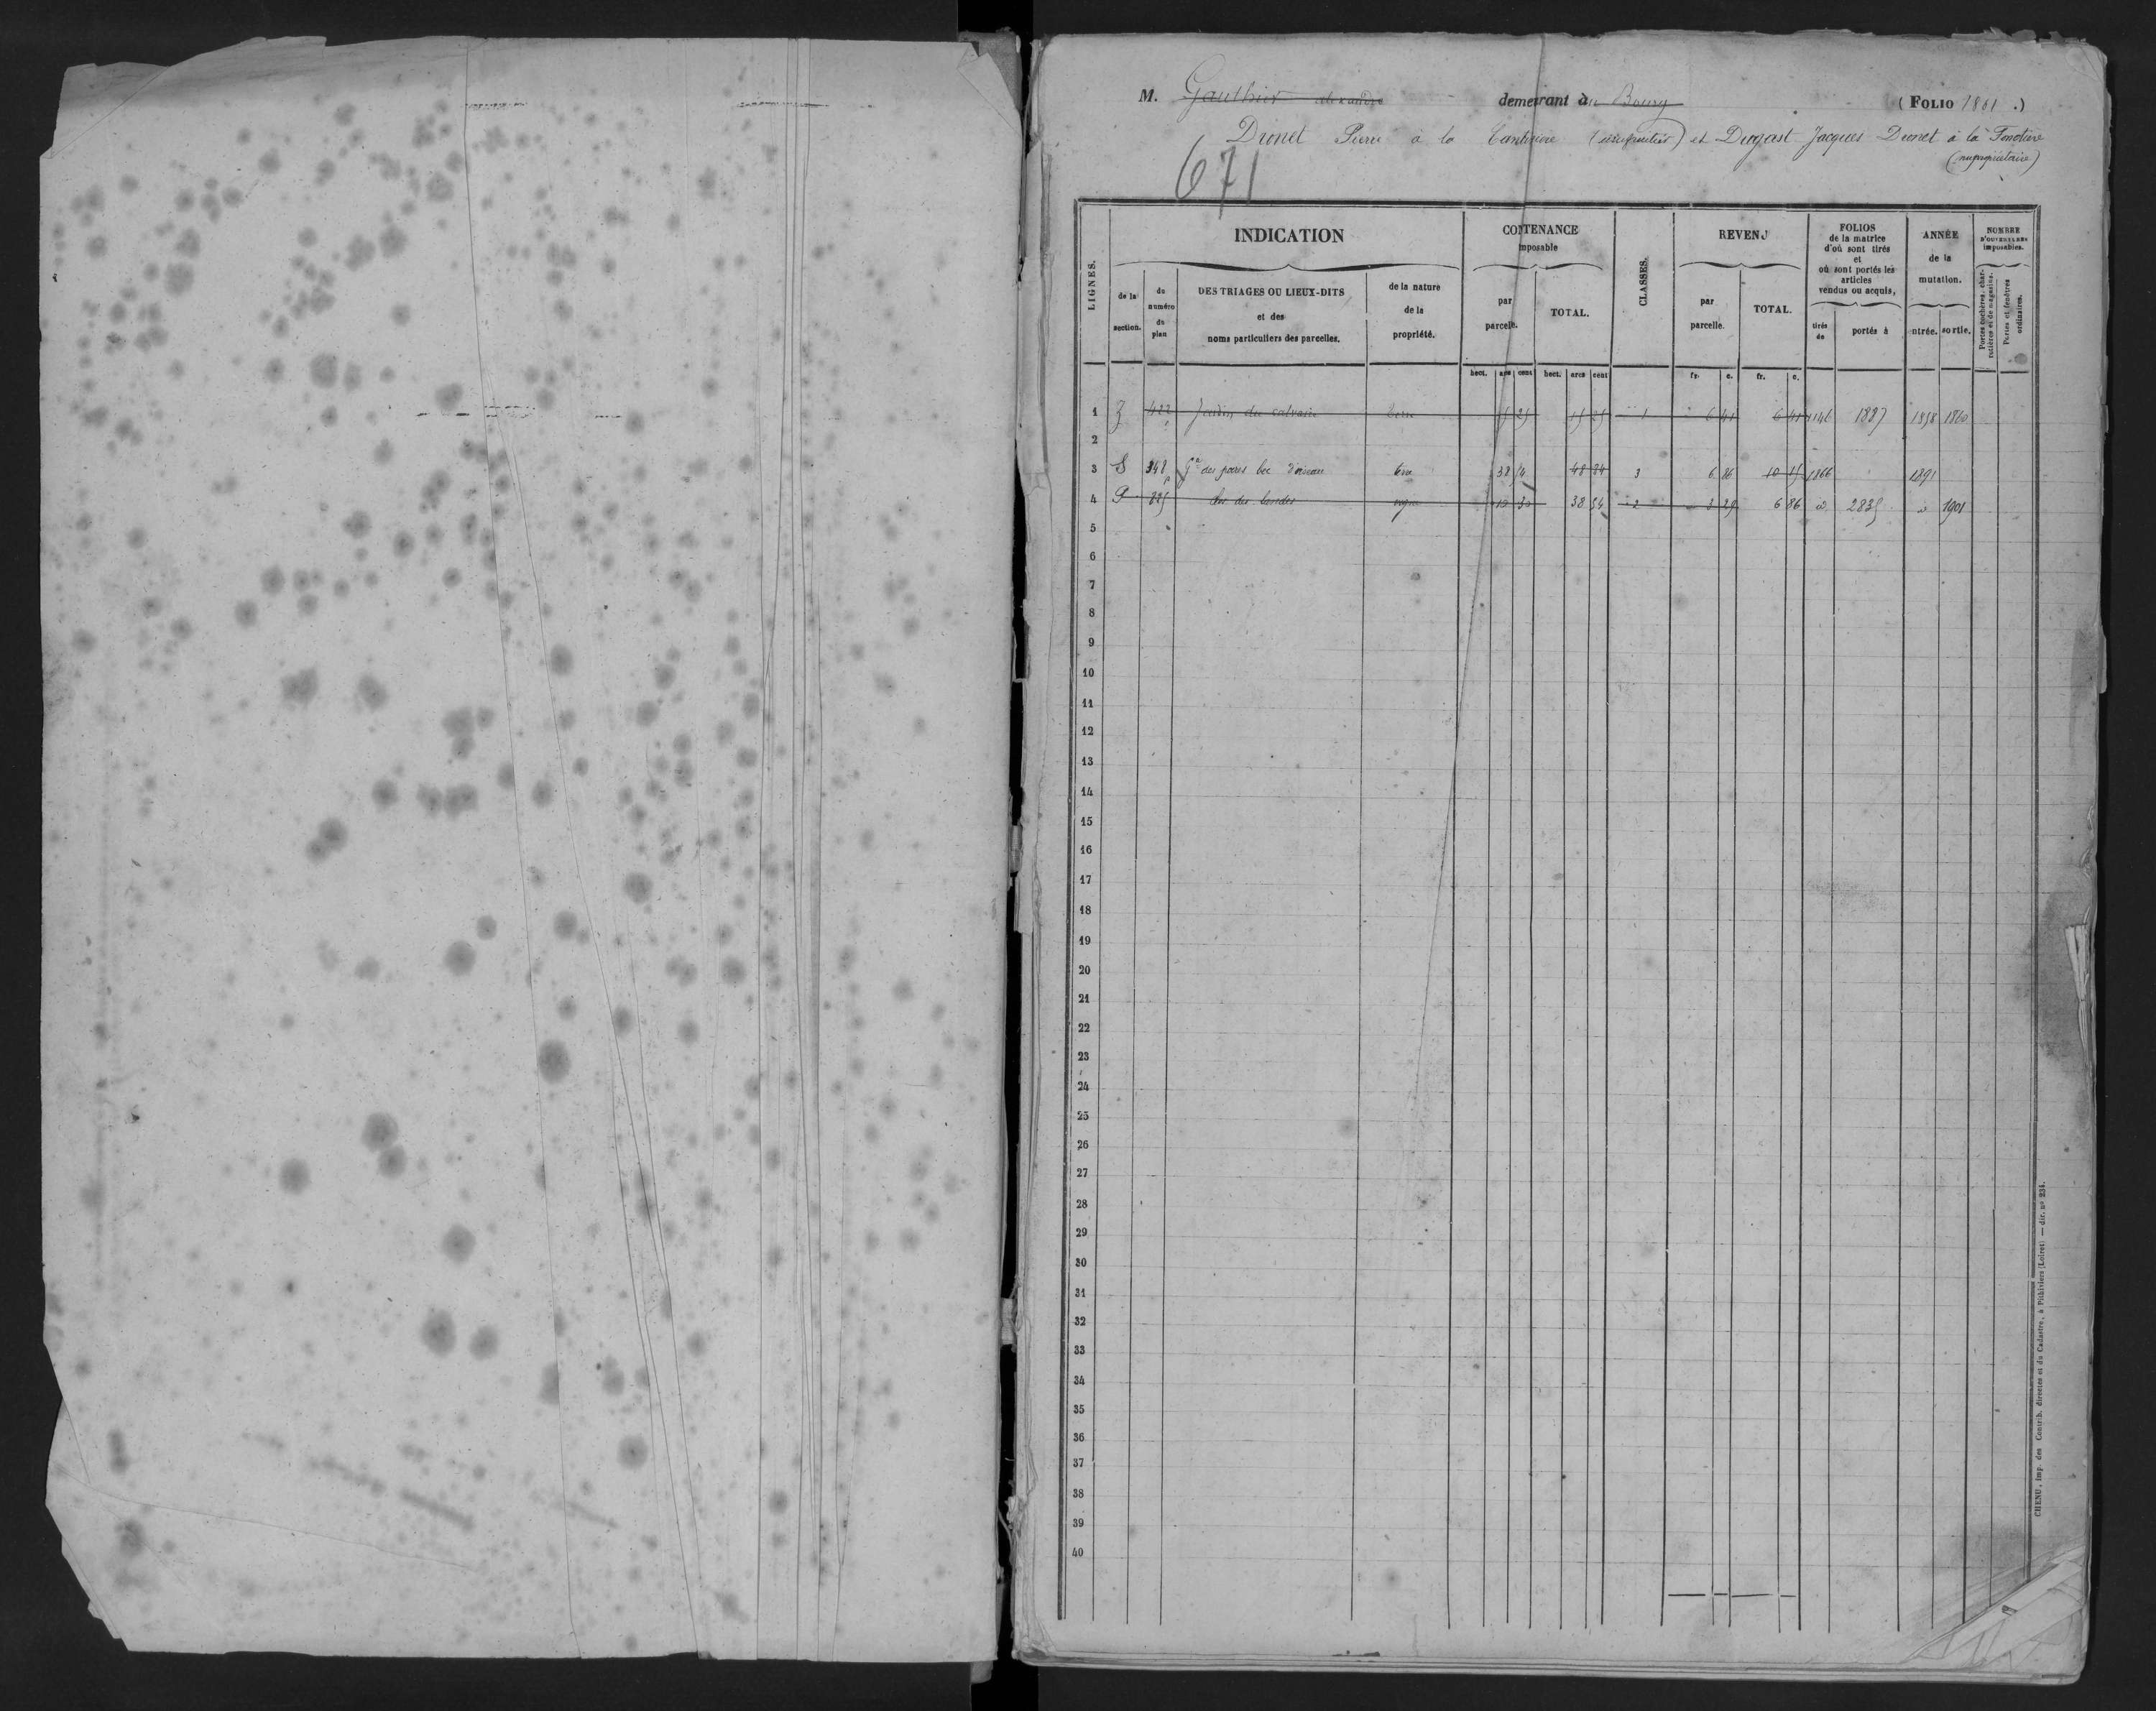 M. Gauthier alexandre demeurant au Bourg (FOLIO 1861.)
Dronet Pierre à la (usufruitier) et Dugast Jacques Dronet à la
(nupropriétaire)
671
LIGNES.
INDICATION
de la section.
du numéro du plan
DES TRIAGES OU LIEUX-DITS
et des
noms particuliers des parcelles.
de la nature
de la
propriété.
CONTENANCE
imposable
par parcelle.
TOTAL.
CLASSES.
REVENU
par parcelle.
TOTAL.
FOLIOS
de la matrice
d'où sont tirés
et
où sont portés les
articles
vendus ou acquis,
tirés de
portés à
ANNÉE
de la
mutation.
entrée. sortie.
NOMBRE
D'OUVERTURES
imposables.
Portes cochères, charretières et de magasins.
Portes et fenêtres ordinaires.
hect. ares cent hect. ares cent fr. c. fr. c.
1 Z 422 Jardin du calvaire terre 15 25 15 25 1 6 41 6 41 1146 1887 1858 1860
2
3 S 348p Gde des parés bec d'oiseau terre 38 54 48 84 3 6 86 10 15 1866 1891
4 P 225 Clos des landes vigne 10 30 38 54 2 3 29 6 86 d° 2835 d° 1901
5
6
7
8
9
10
11
12
13
14
15
16
17
18
19
20
21
22
23
24
25
26
27
28
29
30
31
32
33
34
35
36
37
38
39
40
CHENU, imp. des Contrib. directes et du Cadastre, à Pithiviers (Loiret) — dir. no 234.